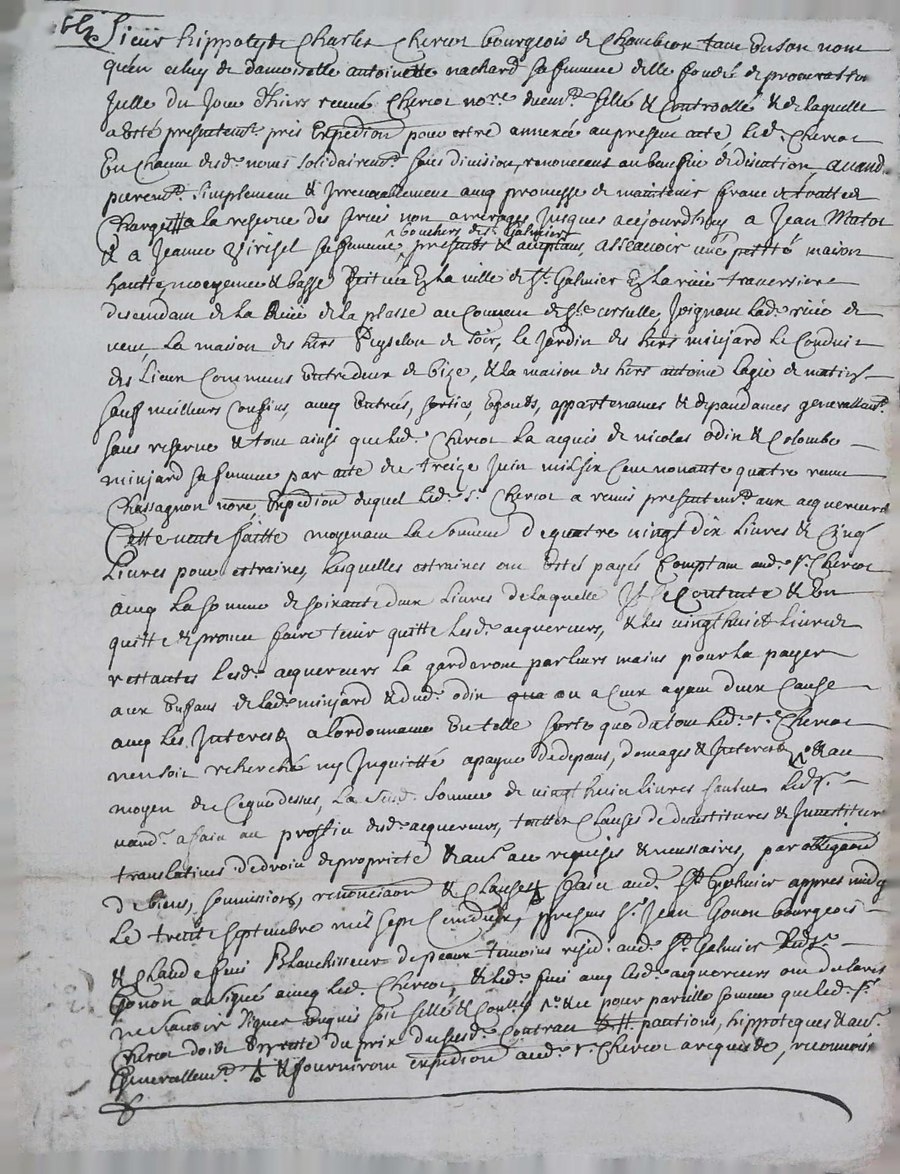 Sieur hippolyte Charles Chercot bourgeois de tant En son nom
qu'en celuy de damoiselle antoinette nachard sa femme delle fondé de procuration
du jour d'hiers receue Chercot nore. duemt. sellé & Controollé & de laquelle
a Esté presentemt. pris Expedion pour estre annexée au present acte led. Chercot
En chacun desd. noms solidairemt. sans division, renonceant au benefice de discution, a vand.
puremt. simplement & Irrevocablement avec promesse de maintenir franc de toutte
Charges a la reserve des servis non arrerages jusques a cejourdhuy a Jean Matot
bouchers de St. Galmier
& a Jeanne sa femme presents & acceptans, ascavoir une petitte maison
hautte, moyenne & basse scituée En la ville de St. Galmier En la rüe traversiere
descendant de la Rüe de la plasse au Couvent de Ste. ursulle, Joignant lad. rüe de
vent, la maison des hers Peyselon de soir, le Jardin des hers minjard le Conduit
des Lieux Communs Entredeux de bize, & la maison des hers antoine lagié de matin
sauf meilleurs Confins, avec Entrées, sorties, Egouts, appartenances & depandances generallemt.
sans reserve & tout ainsi que led. Chercot la acquis de nicolas odin & Colombe
minjard sa femme par acte du treize Juin mil six Cent nonante quatre receu
Chassagnon nore Expedion duquel led. sr. Chercot a remis presentemt. aux acquereurs
Cette vente faitte moyenant la somme de quatre vingt dix Livres & Cinq
Livres pour estraines, lesquelles estraines ont Estés payés Comptant aud. sr. Chercot
avec la somme de soixante deux Livres de laquelle Il se Contente & En
quitte & promet faire tenir quitte lesd. acquereurs, & les vingt huict livres
restantes lesd. acquereurs la garderont par leurs mains pour la payer
aux Enfans de lad. minjard & dud. odin ou a Ceux ayant deux Cause
avec les Interests a lordonnance En telle sorte que du tout led. sr. Chercot
nen soit recherché ny Inquietté a payne de depans, domages & Interests & au
moyen de Ce que dessus, la susd. somme de vingt huit livres led. sr.
vand. a fait au proffit desd. acquereurs, touttes Clauses de devestitures & Invstiture
translations de droit de proprieté & aus. au requises & necessaires, par obligaon
de biens, soumissions, renonciaon & clauses faict aud. St. Galmier appres midy
Le trente septembre mil sept Cent deux, presens Sr. Jean Gonon bourgeois
& Claude funi Blanchisseur de peaux temoins resid. aud. St. Galmier led. sr.
Gonon a signé avec led. Chercot, & led. funi avec lesd. acquereurs ont declarés
ne scavoir signer Enquis soit sellé & Conllé pour pareille somme que led. sr.
Chercot doibt de reste du prix dususd. Contract pantions, hippoteques & aus.
Generallemt. & fourniront expedion aud. sr. Chercot acquis &